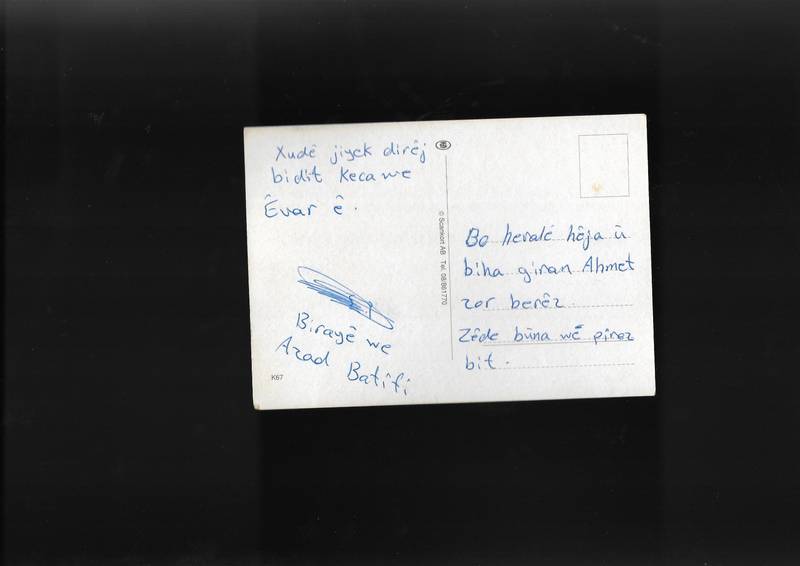 Xudê jiyek dirêj
bidit Keca we
Êvar ê.
Birayê we
Azad Batîfi
K67
© Scankort AB Tel. 08/861770
Bo hevalé hêja û
biha giran Ahmet
zor berêz
Zêde bûna wê pîroz
bit.